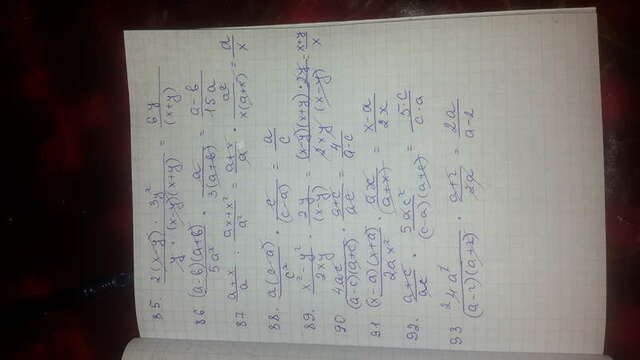 85. 2(x-y) · 3y² / y · (x-y)(x+y) = 6y / (x+y)
86 (a-b)(a+b) / 5a² · a / 3(a+b) = a-b / 15a
87 a+x / a : ax+x² / a² = a+x / a · a² / x(a+x) = a / x
88. a(c-a) / c² · c / (c-a) = a / c
89. x²-y² / 2xy · 2y / (x-y) = (x-y)(x+y) · 2y / 2xy (x-y) = x+y / x
90 4ac / (a-c)(a+c) · a+c / ac = 4 / a-c
91 (x-a)(x+a) / 2ax² · ax / (a+x) = x-a / 2x
92. a+c / ac · 5ac² / (c-a)(a+c) = 5c / c-a
93 4a² / (a-2)(a+2) · a+2 / 2a = 2a / a-2